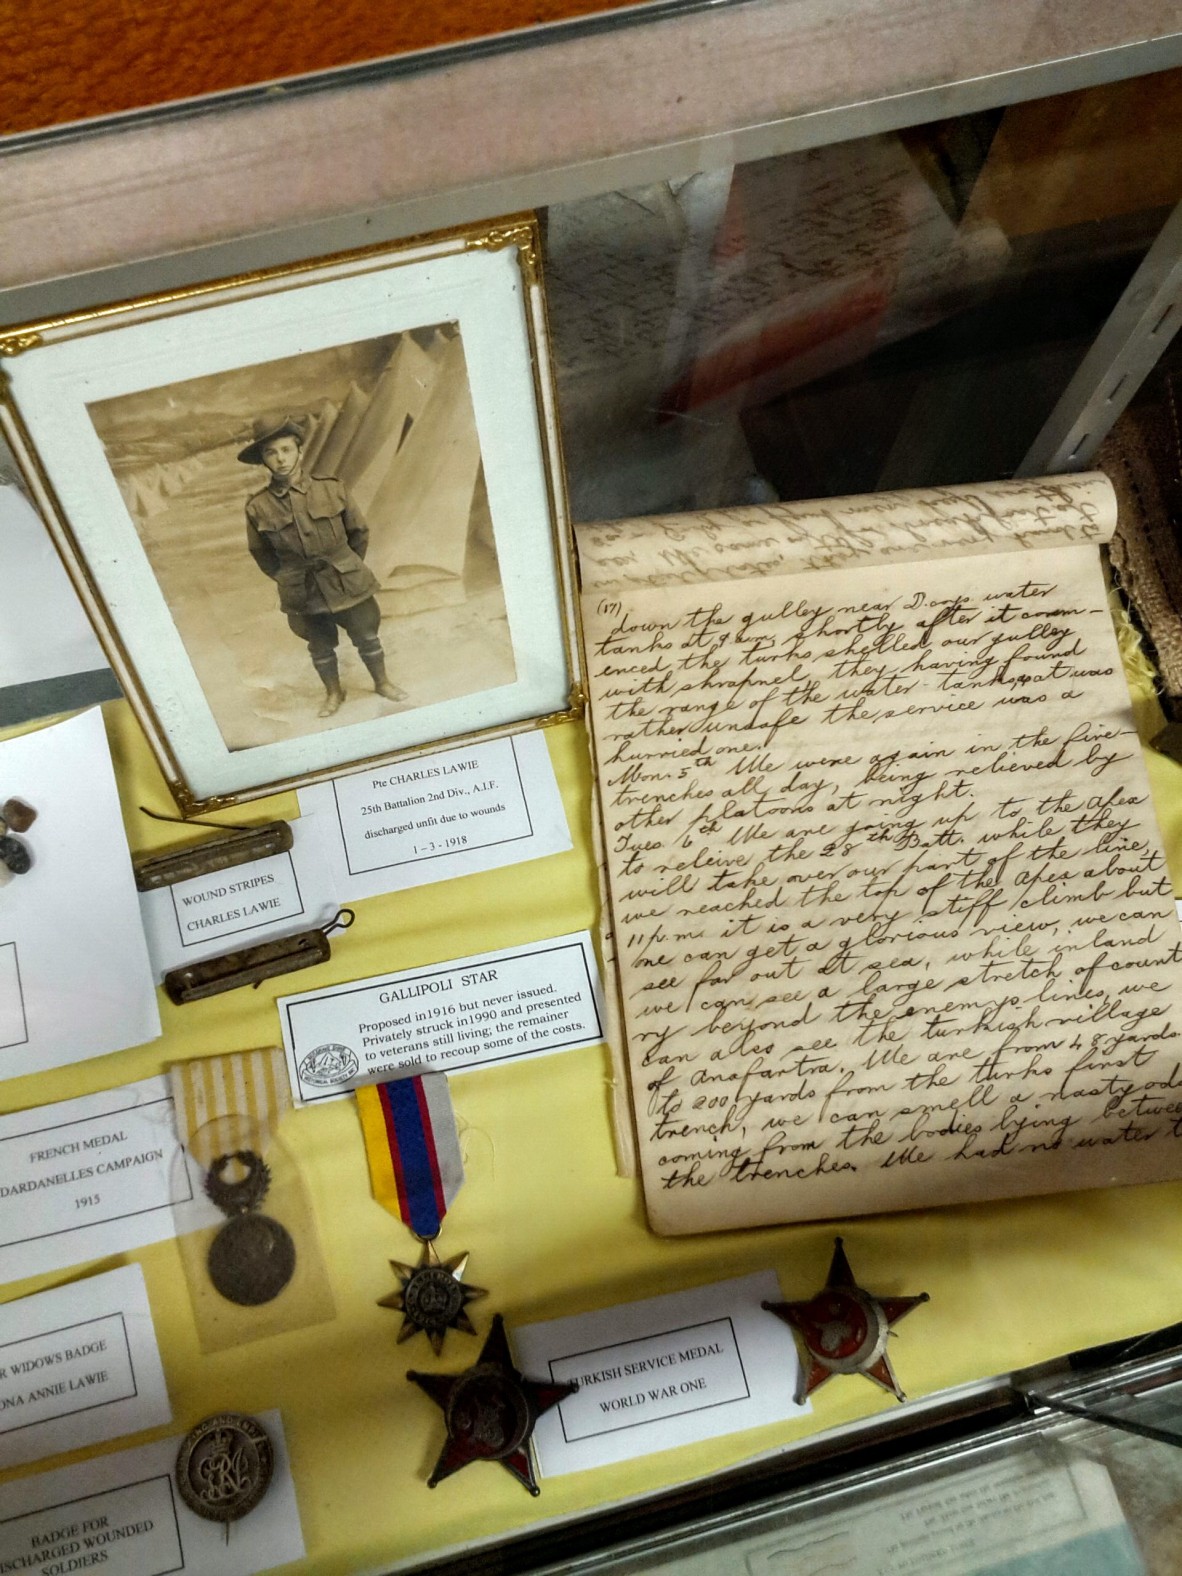 Pte CHARLES LAWIE
25th Battalion 2nd Div., A.I.F.
discharged unfit due to wounds
1 – 3 – 1918
WOUND STRIPES
CHARLES LAWIE
GALLIPOLI STAR
Proposed in1916 but never issued.
Privately struck in1990 and presented
to veterans still living; the remainer
were sold to recoup some of the costs.
FRENCH MEDAL
DARDANELLES CAMPAIGN
1915
WIDOWS BADGE
ANNIE LAWIE
BADGE FOR
WOUNDED
SOLDIERS
TURKISH SERVICE MEDAL
WORLD WAR ONE
(17)
down the gulley near D. coys water
tanks at 9 a.m., shortly after it comm–
enced the turks shelled our gulley
with shrapnel, they having found
the range of the water-tanks, it was
rather unsafe the service was a
hurried one.
Mon. 5th We were again in the fire–
trenches all day, being relieved by
other platoons at night.
Tues 6th We are going up to the Apex
to releive the 28th Batt. while they
will take over our part of the line,
we reached the top of the Apex about
11 p.m. it is a very stiff climb but
one can get a glorious view, we can
see far out at sea, while inland
we can see a large stretch of count
ry beyond the enemys lines, we
can also see the turkish village
of Anafartra. We are from 48 yards
to 200 yards from the turks first
trench, we can smell a nasty
coming from the bodies lying between
the trenches. We had no water